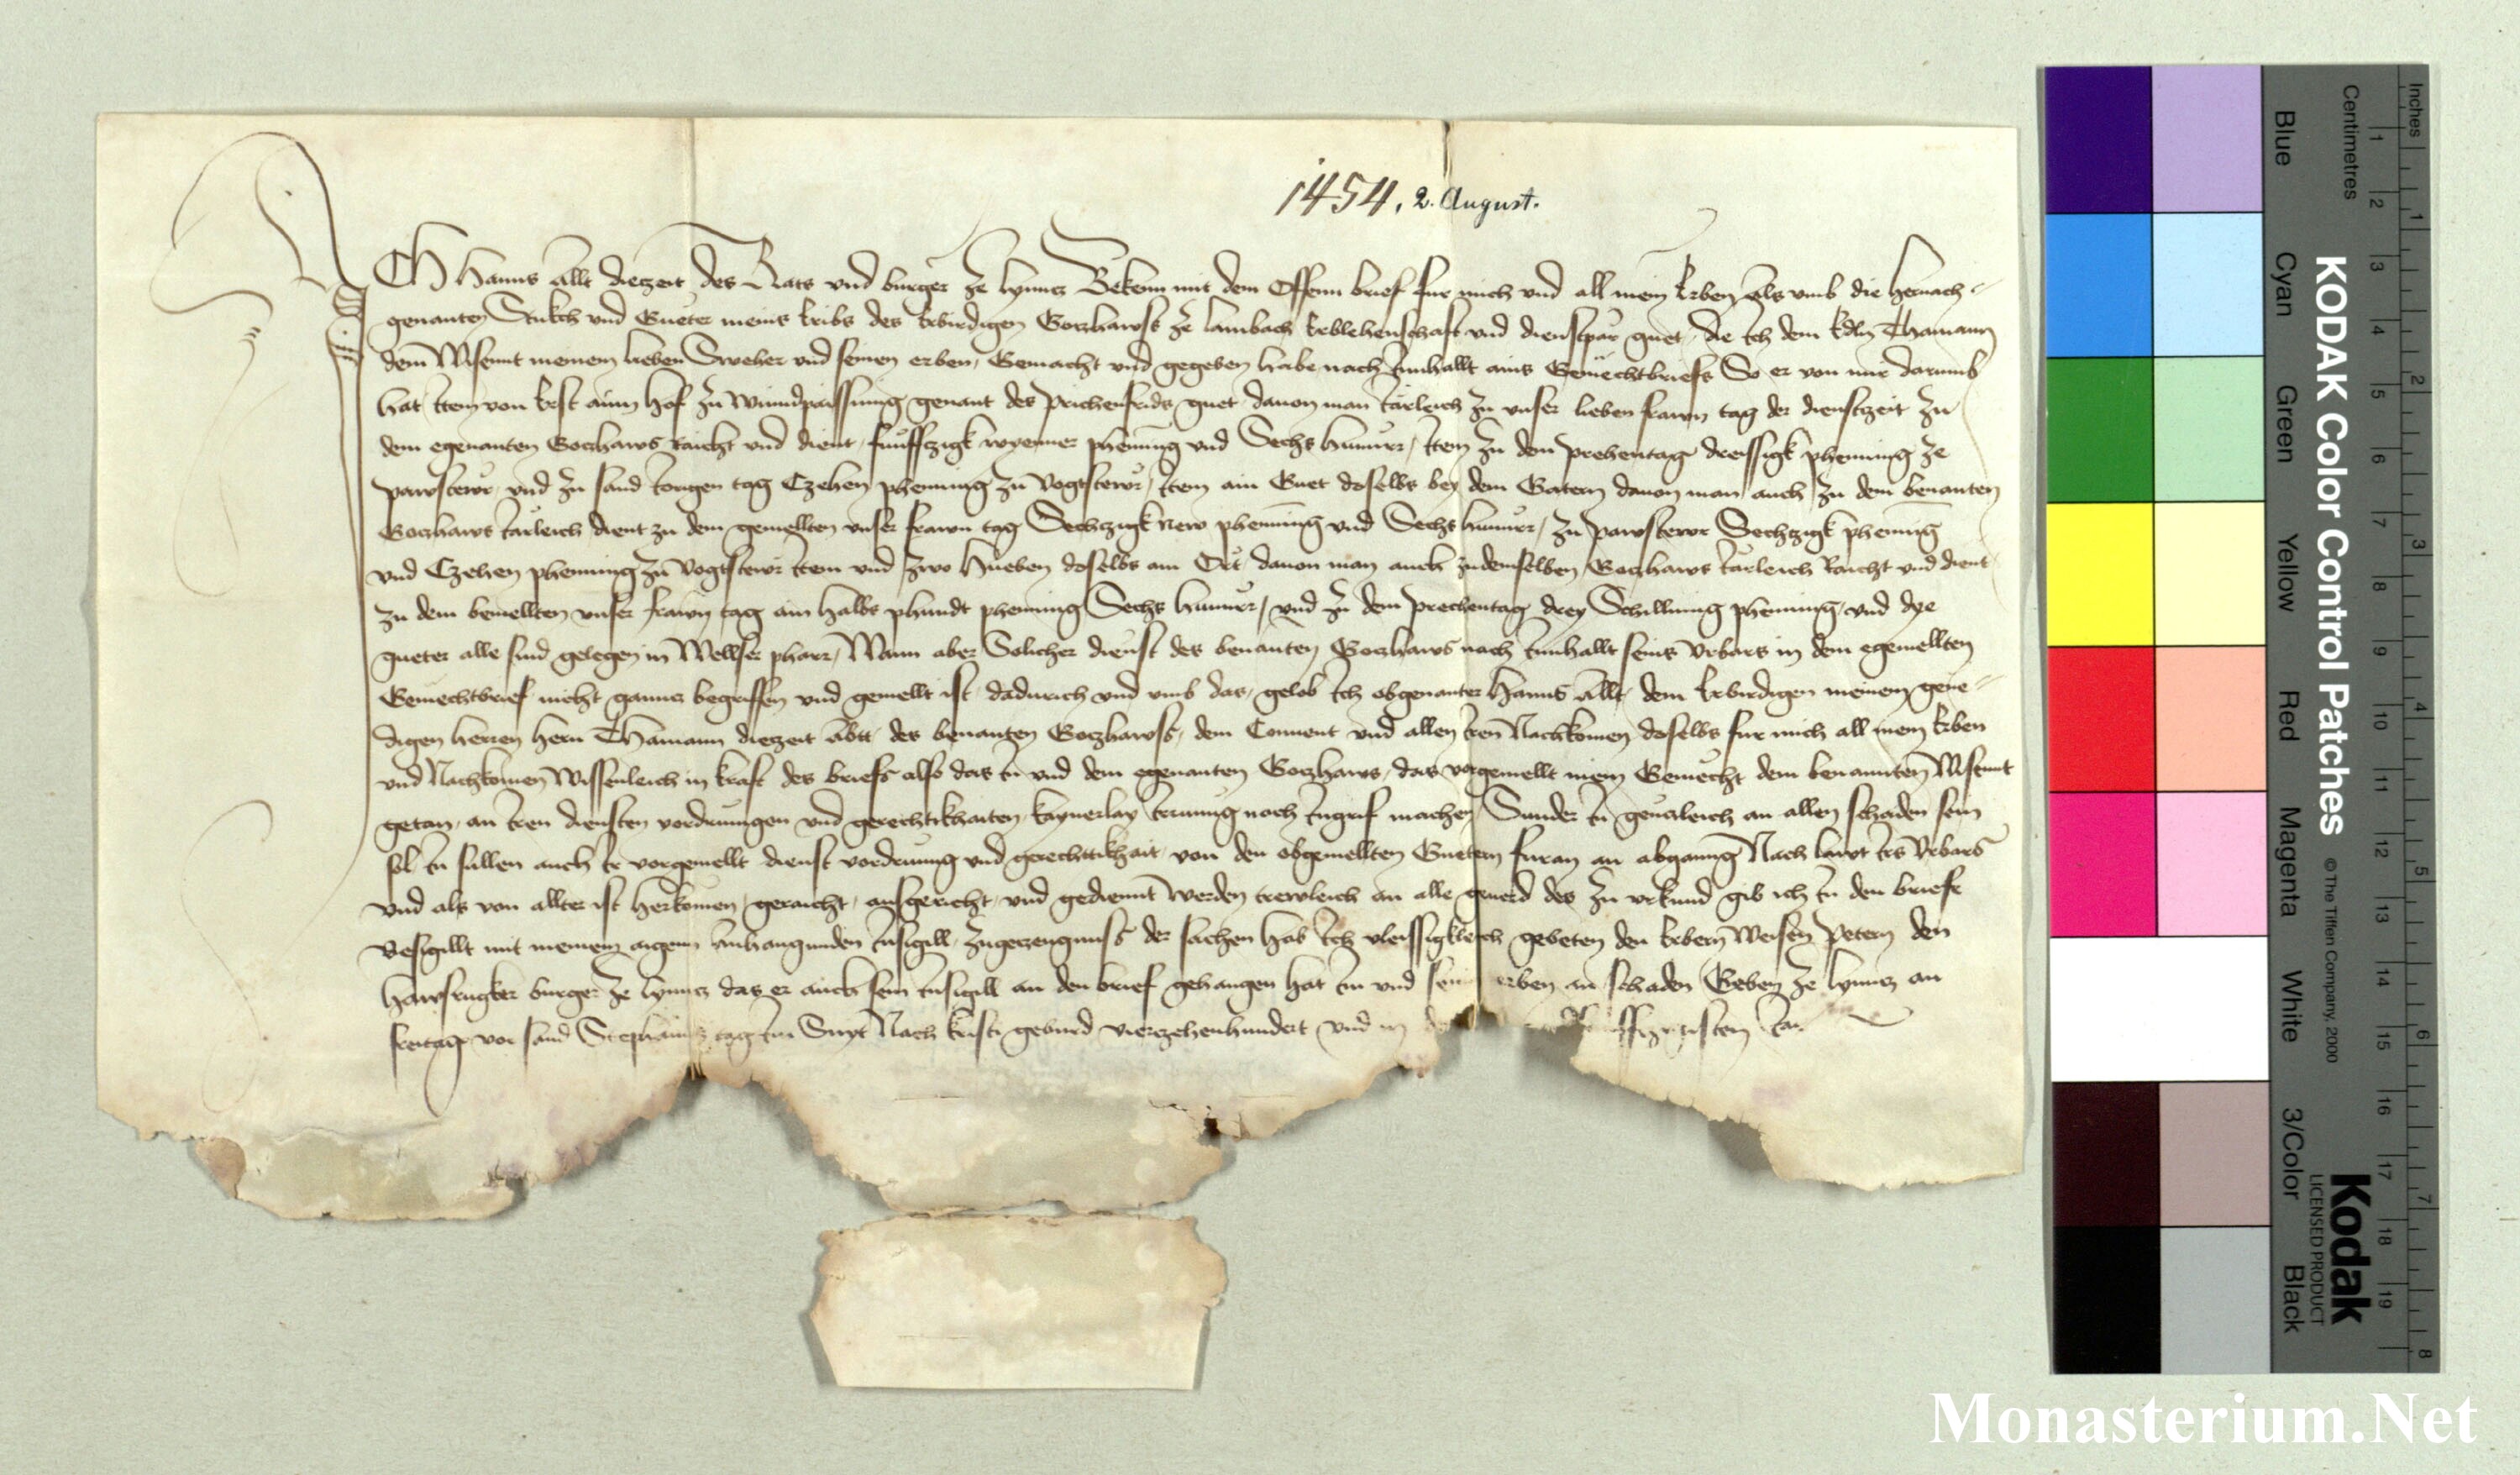 1454, 2. August.
ICH Hanns Allt diezeit des Rats vnd burger ze lynncz Bekenn mit dem Offenn brief fur mich vnd all mein Erben Als vmb die hernach
genanten Stukch vnd Gueter meins leibs des Erbirdigen Goczhawss ze lambach Erblehenschaft vnd dienstper guet, die Ich dem Edln Thamann
dem Wisennt meinem lieben Sweher vnd seinen erben, Gemacht vnd gegeben habe nach Innhallt ains Gemechtbriefs So er von mir darumb
hat Item von Erst ainn hof zu genant des guet dauon man Järleich zu vnser lieben frawn tag der dienstzeit zu
dem egenanten Goczhaws raicht vnd dient, funffczigk wyenner phenning vnd Sechs huner, Item zu den prehentag dreissigk phenning ze
pawstewr, vnd zu sand Jorigen tag Czehen phenning zu vogtstewr, Item ain Guet doselbs bey dem Gatern dauon man auch zu dem benanten
Goczhaws Järleich dient zu dem gemellten vnser frawn tag Sechczigk new phenning vnd Sechs hunner, zu pawstewr Sechczigk phenning
vnd Czehen phenning zu vogtstewr Item vnd zwo hueben doselbs am Ort dauon man auch zudemselben Goczhaws Järleich Raicht vnd dient
zu dem bemellten vnser frawn tag ain halbs phundt phenning Sechs hunner, vnd zu dem prechentag drey Schilling phenning, vnd dye
gueter alle sind gelegen in Wellser pharr, Wann aber Solicher dienst des benanten Goczhaws nach Innhallt seins Vrbars in dem egemellten
Gemechtbrief nicht gannz begriffen vnd gemellt ist, dadurich vnd vmb das, gelob Ich obgenanter Hanns Allt, dem Erbirdigen meinem gene-
digen herren hern Thamann diezeit Abtt des benanten Goczhawss, dem Conuent vnd allen Iren Nachkomen doselbs fur mich all mein Erben
vnd Nachkomen Wissenleich in kraft des briefs also das In vnd dem egenanten Goczhaws, das vorgemellt mein Gemecht dem benannten Wisennt
getan, an Iren diensten vordrungen vnd gerechtikhaiten kaynerlay Irrung noch Ingrif machen Sunder In genczleich an allen schaden sein
sol In sullen auch Ir vorgemellt dienst vordrung vnd gerechttikhait von den obgemellten Guetern furan an abganng Nach lawt Irs Vrbars
vnd als von allter ist herkomen, geraicht, ausgericht, vnd gediennt werden trewleich an alle geuerd des zu vrkund gib ich In den briefe
Besigillt mit meinem aigenn anhangunden Insigill, Zugeczeugnuss der sachen hab Ich vleissigkleich gebeten den Erbern Weisen Petern den
hawsrugker burger ze lynncz das er auch sein Insigill an den brief gehangen hat Im vnd sein erben an schaden Geben ze lynncz an
freitag vor sand Stephanns tag Im Snyt Nach kristi geburd vierczehenhundert vnd in
KODAK Color Control Patches
© The Tiffen Company, 2000
Kodak
LICENSED PRODUCT
Inches
1 2 3 4 5 6 7 8
Centimetres
1 2 3 4 5 6 7 8 9 10 11 12 13 14 15 16 17 18 19
Blue
Cyan
Green
Yellow
Red
Magenta
White
3/Color
Black
Monasterium.Net